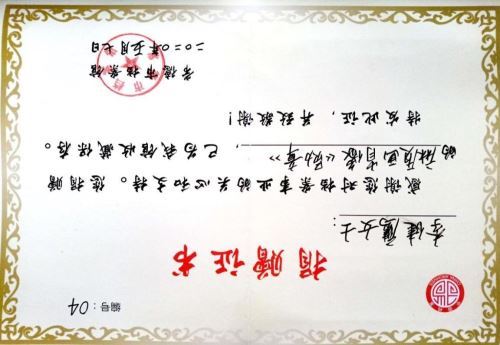 编号：04
捐赠证书
李健鹰女士：
感谢您对档案事业的关心和支持。您捐赠
的，已为我馆收藏保存。
特发此证，并致敬谢！
常德市档案馆
二〇二〇年五月七日